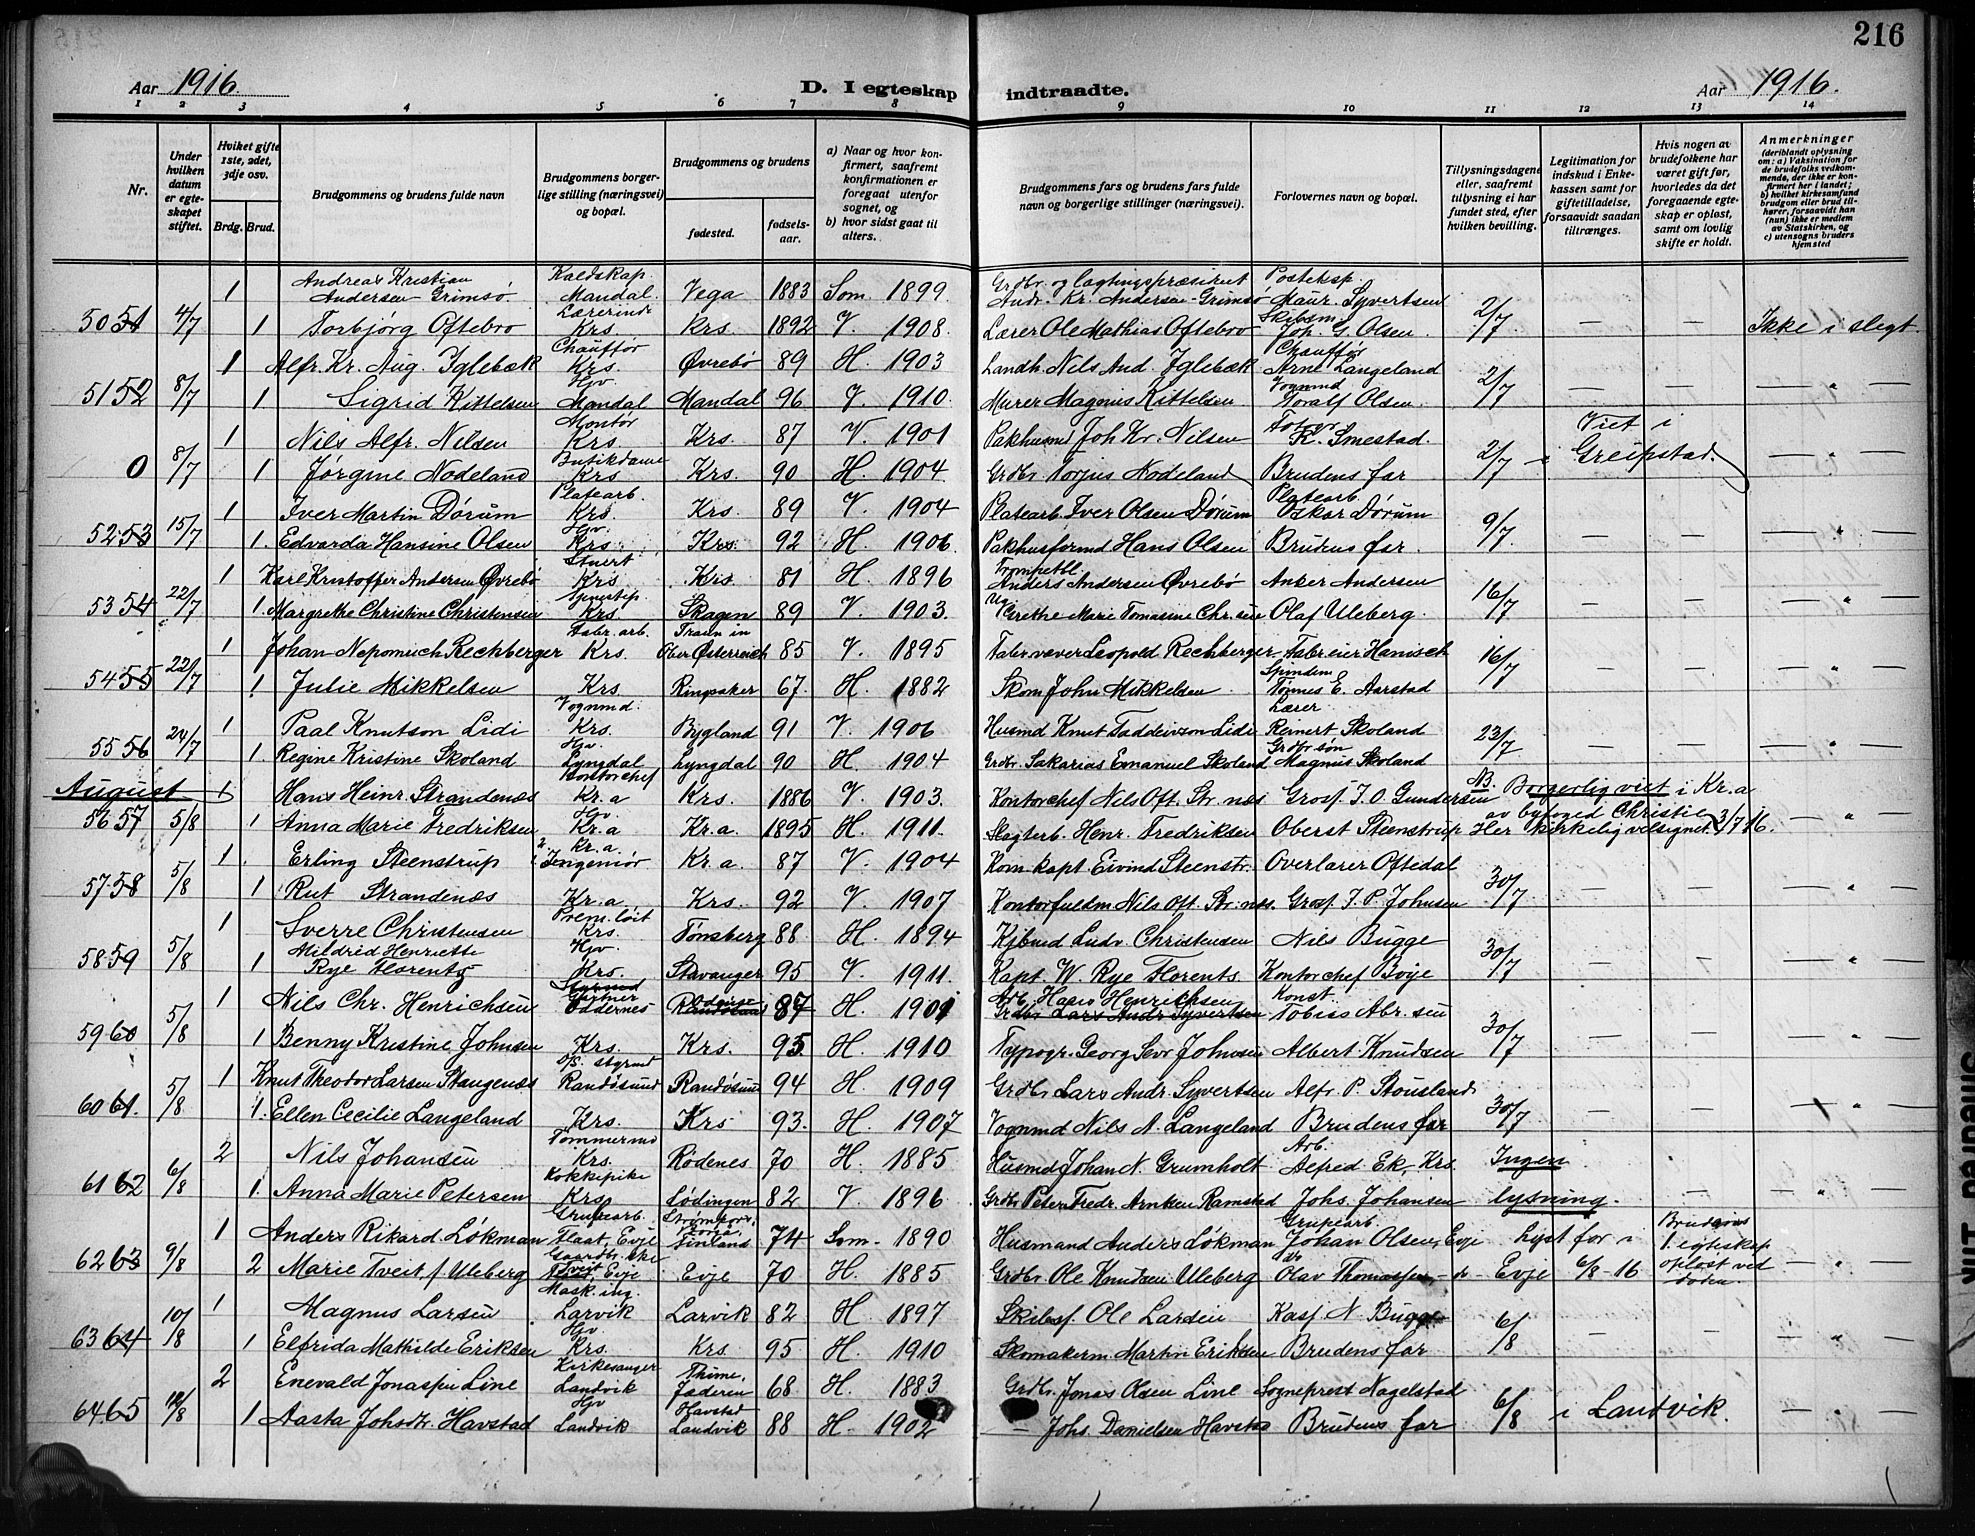 216
Aar 1916.
D. I egteskap indtraadte.
Aar 1916.
1 2 3 4 5 6 7 8 9 10 11 12 13 14
Nr.
Under hvilken datum er egteskapet stiftet.
Hviket gifte 1ste, 2det, 3dje osv.
Brdg. Brud.
Brudgommens og brudens fulde navn
Brudgommens borgerlige stilling (næringsvei) og bopæl.
Brudgommens og brudens
fødested.
fødselsaar.
a) Naar og hvor konfirmert, saafremt konfirmationen er foregaat utenfor sognet, og
b) hvor sidst gaat til alters.
Brudgommens fars og brudens fars fulde navn og borgerlige stillinger (næringsvei).
Forlovernes navn og bopæl.
Tillysningsdagene eller, saafremt tillysning ei har fundet sted, efter hvilken bevilling.
Legitimation for indskud i Enkekassen samt for giftetilladelse, forsaavidt saadan tiltrænges.
Hvis nogen av brudefolkene har været gift før, hvorledes da det foregaaende egteskap er opløst, samt om lovlig skifte er holdt.
Anmerkninger (deriblandt oplysning om: a) Vaksination for de brudefolks vedkommende, der ikke er konfirmert her i landet; b) hvilket kirkesamfund brudgom eller brud tilhører, forsaavidt han (hun) ikke er medlem av Statskirken, og c) utensogns bruders hjemsted
1 Andreas Kristian Andersen Grimsø Mandal. Vega 1883 Som. 1899. Grdbr. og lagtingspræsident Andr. Kr. Andersen-Grimsø Posteksp. Maur. Syvertsen
50 51 4/7 1 Torbjørg Oftebro Lærerinde Krs. Krs. 1892 V. 1908. Lærer Ole Mathias Oftebro Skibsm. Joh. G. Olsen. 2/7 — — Ikke i slegt.
1 Alfr. Kr. Aug. Iglebæk Chauffør Krs. Øvrebø 89 H. 1903 Landh. Nils And. Iglebæk Chauffør Arne Langeland
51 52 8/7 1 Sigrid Kittelsen Hjv. Mandal Mandal 96 V. 1910. Murer Magnus Kittelsen Vognmd Toralf Olsen. 2/7 — — — „ —
1 Nils Alfr. Nilsen Montør Krs. Krs. 87 V. 1901 Pakhusmd Joh Kr. Nilsen K. Smestad. Viet i
0 8/7 1 Jørgine Nodeland Butikdame Krs Krs. 90 H. 1904. Grdbr. Torjus Nodeland Brudens far 2/7 i Greipstad. — „ —
1 Iver Martin Dørum Platearb. Krs Krs. 89 V. 1904 Platearb. Iver Olsen Dørum Platearb. Oskar Dørum
52 53 15/7 1. Edvarda Hansine Olsen Hjv. Krs Krs. 92 H. 1906. Pakhusformd Hans Olsen Brudens far. 9/7. — — — „ —
1 Karl Kristoffer Andersen Øvrebø Stuert Krs Krs 81 H. 1896 Anders Andersen Øvrebø Anker Andersen
53 54 22/7 1. Margrethe Christine Christensen Krs. Skagen 89 V. 1903. Grethe Marie Tomasine Chr.sen Olaf Uleberg. 16/7 — — — „ —
1 Johan Nepomuch Rechberger Fabr. arb. Krs. Traun in Ober Østerreich 85 V. 1895 Fabr. væver Leopold Rechberger Fabreier Hanisch
54 55 22/7 1 Julie Mikkelsen Krs Ringsaker 67. H. 1882 Skom. John Mikkelsen. Tønnes E. Aarstad 16/7 — — — „ —
1 Paal Knutson Lidi Vognmd. Krs. Bygland 91 V. 1906 Husmd Knut Taddeivson Lidi Lærer Reinert Skoland
55 56 24/7 1. Regine Kristine Skoland Hjv. Lyngdal Lyngdal 90 H. 1904 Grdbr. Sakarias Emanuel Skoland Grdbr søn Magnus Skoland 23/7 — — — „ —
August 1 Hans Heinr. Strandenæs Kontorchef Kr.a Krs. 1886 V. 1903. Kontorchef Nils Oft. Str.næs Gross. J. O. Gundersen NB. Borgerlig viet i Kr.a
56 57 5/8 1 Anna Marie Fredriksen Hjv. Kr.a Kr.a. 1895 H. 1911. Slagterb. Henr. Fredriksen Oberst Steenstrup av byfoged Christie 3/7 16. Her kirkelig velsignet. — „ —
1. Erling Steenstrup Kr.a. Ingeniør Kr.a. 87 V. 1904 Kom.kapt. Eivind Steenstr. Overlærer Oftedal
57 58 5/8 1 Rut Strandenæs Kr.a Krs. 92 V. 1907 Kontorfuldm Nils Oft. Str.næs. Gross. J. P. Johnsen 30/7 — — — „ —
1 Sverre Christensen Prem.løit Krs. Tønsberg 88 H. 1894 Kjbmd Ludv. Christensen Nils Bugge
58 59 5/8 1 Mildrid Henriette Rye Florentz Hjv. Krs. Stavanger 95 V. 1911. Kapt W. Rye Florents. Kontorchef Boye 30/7 — — — „ —
1 Nils Chr. Henrichsen Styrmd Gartner Oddernes Randøsund 87 H. 1901 Arb. Hans Henrichsen Grdbr Lars Andr Syvertsen Konst. Tobias Abr.sen
59 60 5/8 1 Benny Kristine Johnsen Krs. Krs. 95. H. 1910 Typogr. Georg Sev. Johnsen Albert Knudsen 30/7 — — — „ —
1 Knut Theodor Larsen Stangenæs styrmd Randøsund Randøsund 94 H. 1909 Grdbr Lars Andr. Syvertsen Alfr. P. Stousland
60 61. 5/8 1. Ellen Cecilie Langeland Krs. Krs 93. H. 1907 Vognmd Nils N. Langeland Brudens far 30/7 — — — „ —
2 Nils Johansen Tømmermd Krs. Rødenes 70 H. 1885 Husmd Johan N. Grumholt Arb. Alfred Ek Krs. Ingen
61 62 6/8 1. Anna Marie Petersen Kokkepike Krs. Lødingen 82 V. 1896 Grdbr Peter Fredr. Arntzen Ramstad Johs. Johansen lysning. — — — „ —
1 Anders Rikard Løkman Grubearb. Flaat, Evje Finland 74 Som. 1890 Husmand Anders Løkman Grubearb. Johan Olsen, Evje Lyst for i Brudens 1. egteskap
62 63 9/8 2 Marie Tveit f. Uleberg Tveit, Evje Evje 70 H. 1885 Grdbr Ole Knudsen Uleberg Olav Thomassen - do - Evje 6/8-16 opløst ved døden. — „ —
1 Magnus Larsen Mask. ing. Larvik Larvik 82 H 1897 Skibsf. Ole Larsen Kass. N. Bugge
63 64 10/8 1 Elfrida Mathilde Eriksen Hjv. Krs. Krs. 95. H. 1910 Skomakerm. Martin Eriksen Brudens far 6/8 — — — „ —
2 Enevald Jonassen Line Kirkesanger Landvik Thime, Jæderen 68 H. 1883 Grdbr. Jonas Olsen Line Sogneprest Nagelstad
64 65 1 Aasta Johsdtr. Havstad Hjv Landvik Havstad Landvik 88 H. 1902 — Johs. Danielsen Havstad Brudens far 6/8 i Landvik. — „ —